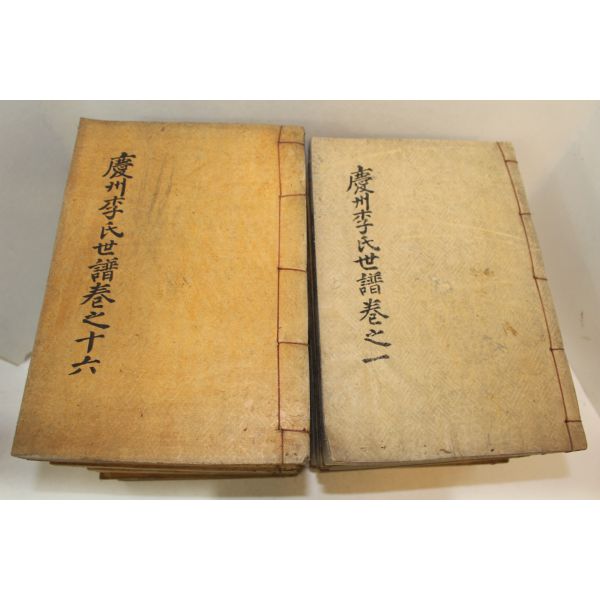 慶州李氏世譜卷之十六
慶州李氏世譜卷之一